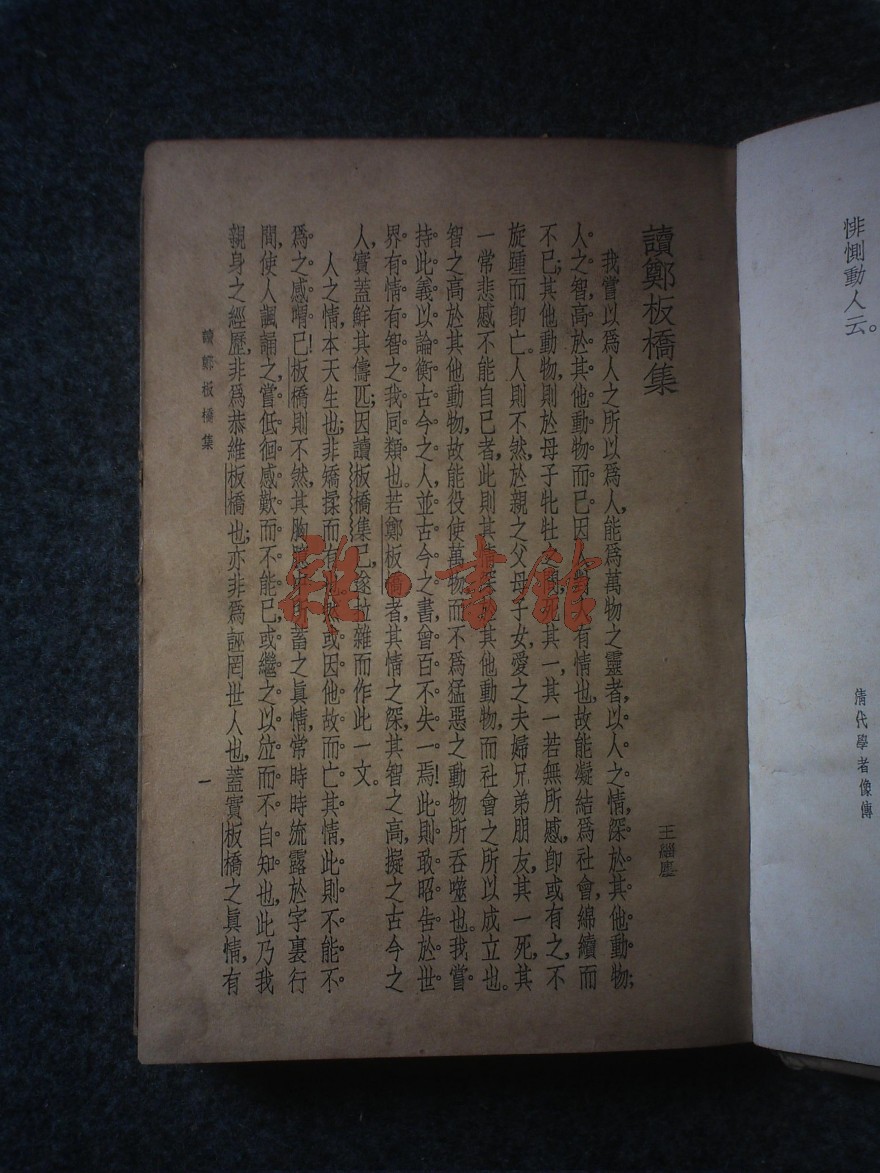 悱惻動人云。
清代學者像傳
讀鄭板橋集
王緇塵
我嘗以爲人之所以爲人,能爲萬物之靈者,以人之情,深於其他動物;
人之智,高於其他動物而已因有情也,故能凝結爲社會,綿續而
不已;其他動物,則於母子牝牡之其一,其一若無所慼,卽或有之,不
旋踵而卽亡。人則不然,於親之父母子女,愛之夫婦兄弟朋友,其一死,其
一常悲慼不能自已者,此則其其他動物,而社會之所以成立也。
智之高於其他動物,故能役使萬物而不爲猛惡之動物所吞噬也。我嘗
持此義以論衡古今之人,並古今之書,會百不失一焉!此則敢昭告於世
界有情有智之我同類也。若鄭板橋者,其情之深,其智之高,擬之古今之
人,實蓋鮮其儔匹;因讀板橋集已,遂拉雜而作此一文。
人之情,本天生也;非矯揉而有也。然或因他故而亡其情,此則不能不
爲之感喟已!板橋則不然,其胸所蓄之眞情,常時時流露於字裏行
間,使人諷誦之,嘗低徊感歎而不能已,或繼之以泣而不自知也,此乃我
親身之經歷,非爲恭維板橋也;亦非爲誣罔世人也,蓋實板橋之眞情,有
讀鄭板橋集
一
雜·書館